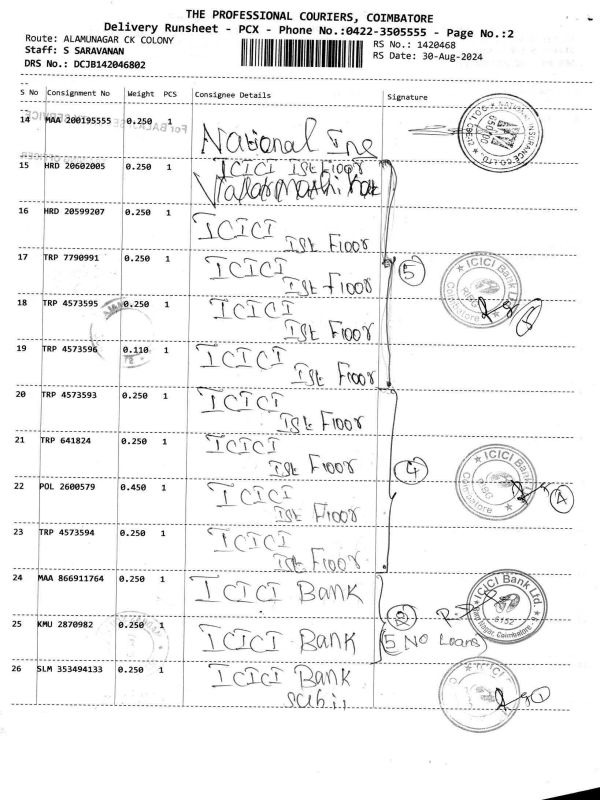 THE PROFESSIONAL COURIERS, COIMBATORE
Delivery Runsheet - PCX - Phone No.:0422-3505555 - Page No.:2
Route: ALAMUNAGAR CK COLONY
Staff: S SARAVANAN
DRS No.: DCJB142046802
RS No.: 1420468
RS Date: 30-Aug-2024
S No Consignment No Weight PCS Consignee Details Signature
14 MAA 200195555 0.250 1 National Ins
15 HRD 20602005 0.250 1 ICICI Ist Floor
16 HRD 20599207 0.250 1 ICICI Ist Floor
17 TRP 7790991 0.250 1 ICICI Ist Floor
5
ICICI Bank Ltd.
Coimbatore
18 TRP 4573595 0.250 1 ICICI Ist Floor
19 TRP 4573596 0.110 1 ICICI Ist Floor
20 TRP 4573593 0.250 1 ICICI Ist Floor
21 TRP 641824 0.250 1 ICICI Ist Floor
4
ICICI Bank
RBG
Coimbatore
4
22 POL 2600579 0.450 1 ICICI Ist Floor
23 TRP 4573594 0.250 1 ICICI Ist Floor
24 MAA 866911764 0.250 1 ICICI Bank
2
ICICI Bank Ltd.
6152
25 KMU 2870982 0.250 1 ICICI Bank
5 No Loans
26 SLM 353494133 0.250 1 ICICI Bank
1